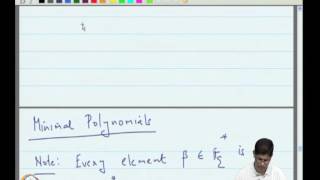 Minimal Polynomials
Note: Every element β ∈ F*q is